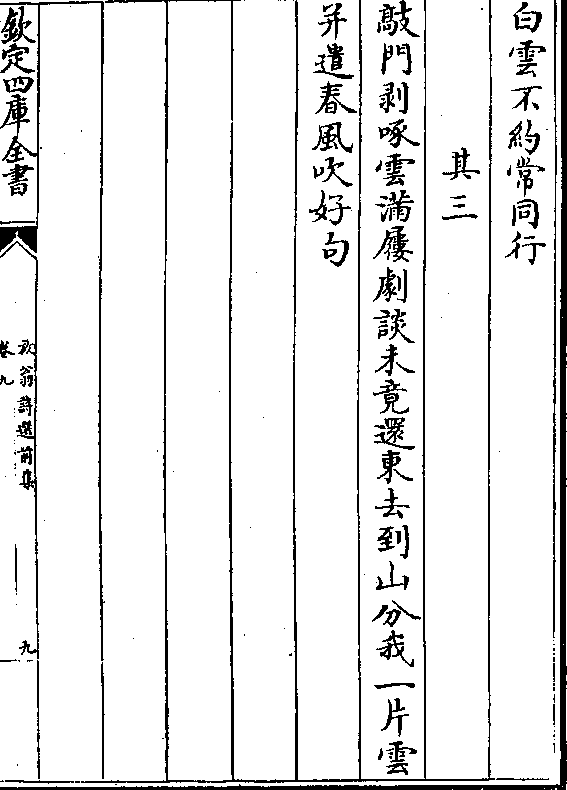 白雲不約常同行
其三
敲門剥啄雲滿屨劇談未竟還東去到山分我一片雲
并遣春風吹好句
欽定四庫全書
秋翁詩選前集
卷九
九